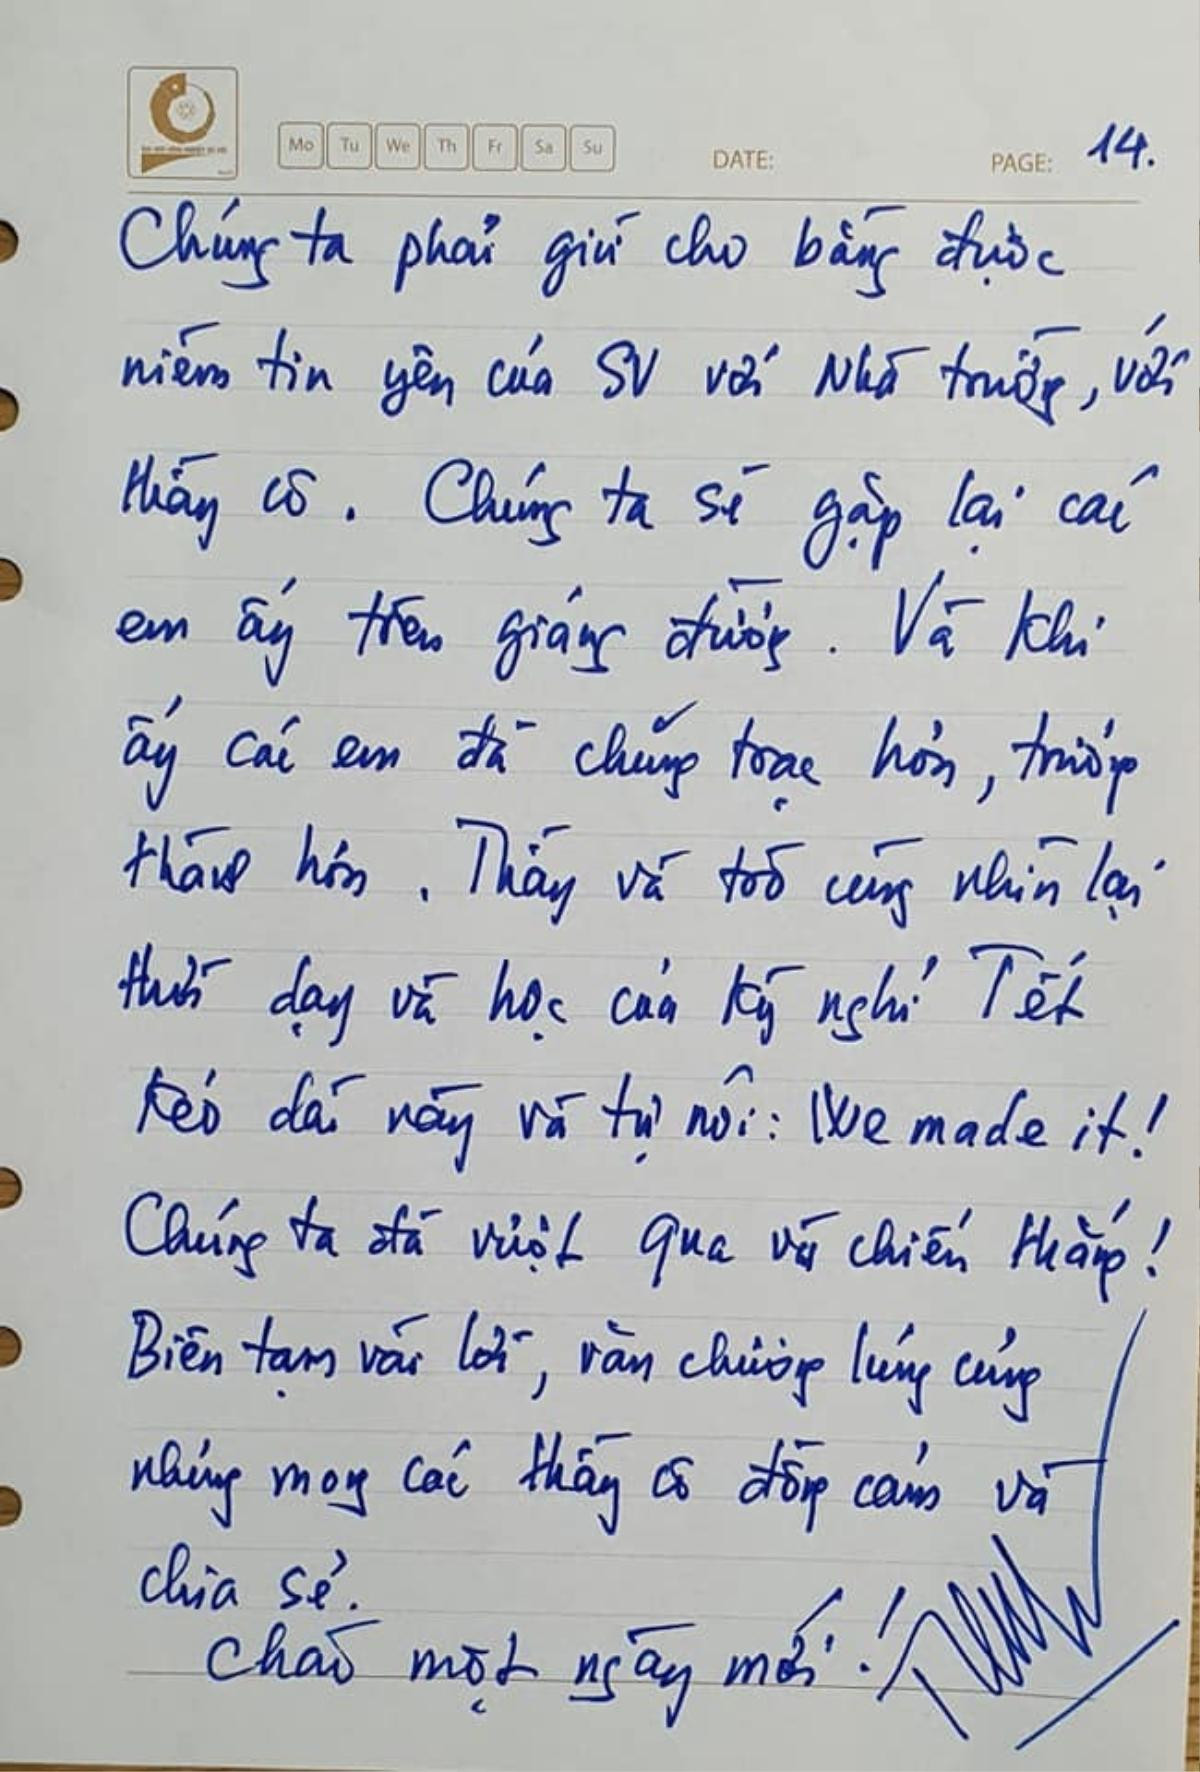 Mo Tu We Th Fr Sa Su DATE: PAGE: 14.
Chúng ta phải giữ cho bằng được
niềm tin yên của SV với Nhà trường, với
thầy cô. Chúng ta sẽ gặp lại các
em ấy trên giảng đường. Và khi
ấy các em đã chững trạc hơn, trưởng
thành hơn. Thầy và trò cùng nhìn lại
thời dạy và học của kỳ nghỉ Tết
kéo dài này và tự nói: We made it!
Chúng ta đã vượt qua và chiến thắng!
Biên tạm vài lời, văn chương lủng củng
nhưng mong các thầy cô đồng cảm và
chia sẻ.
Chào một ngày mới!